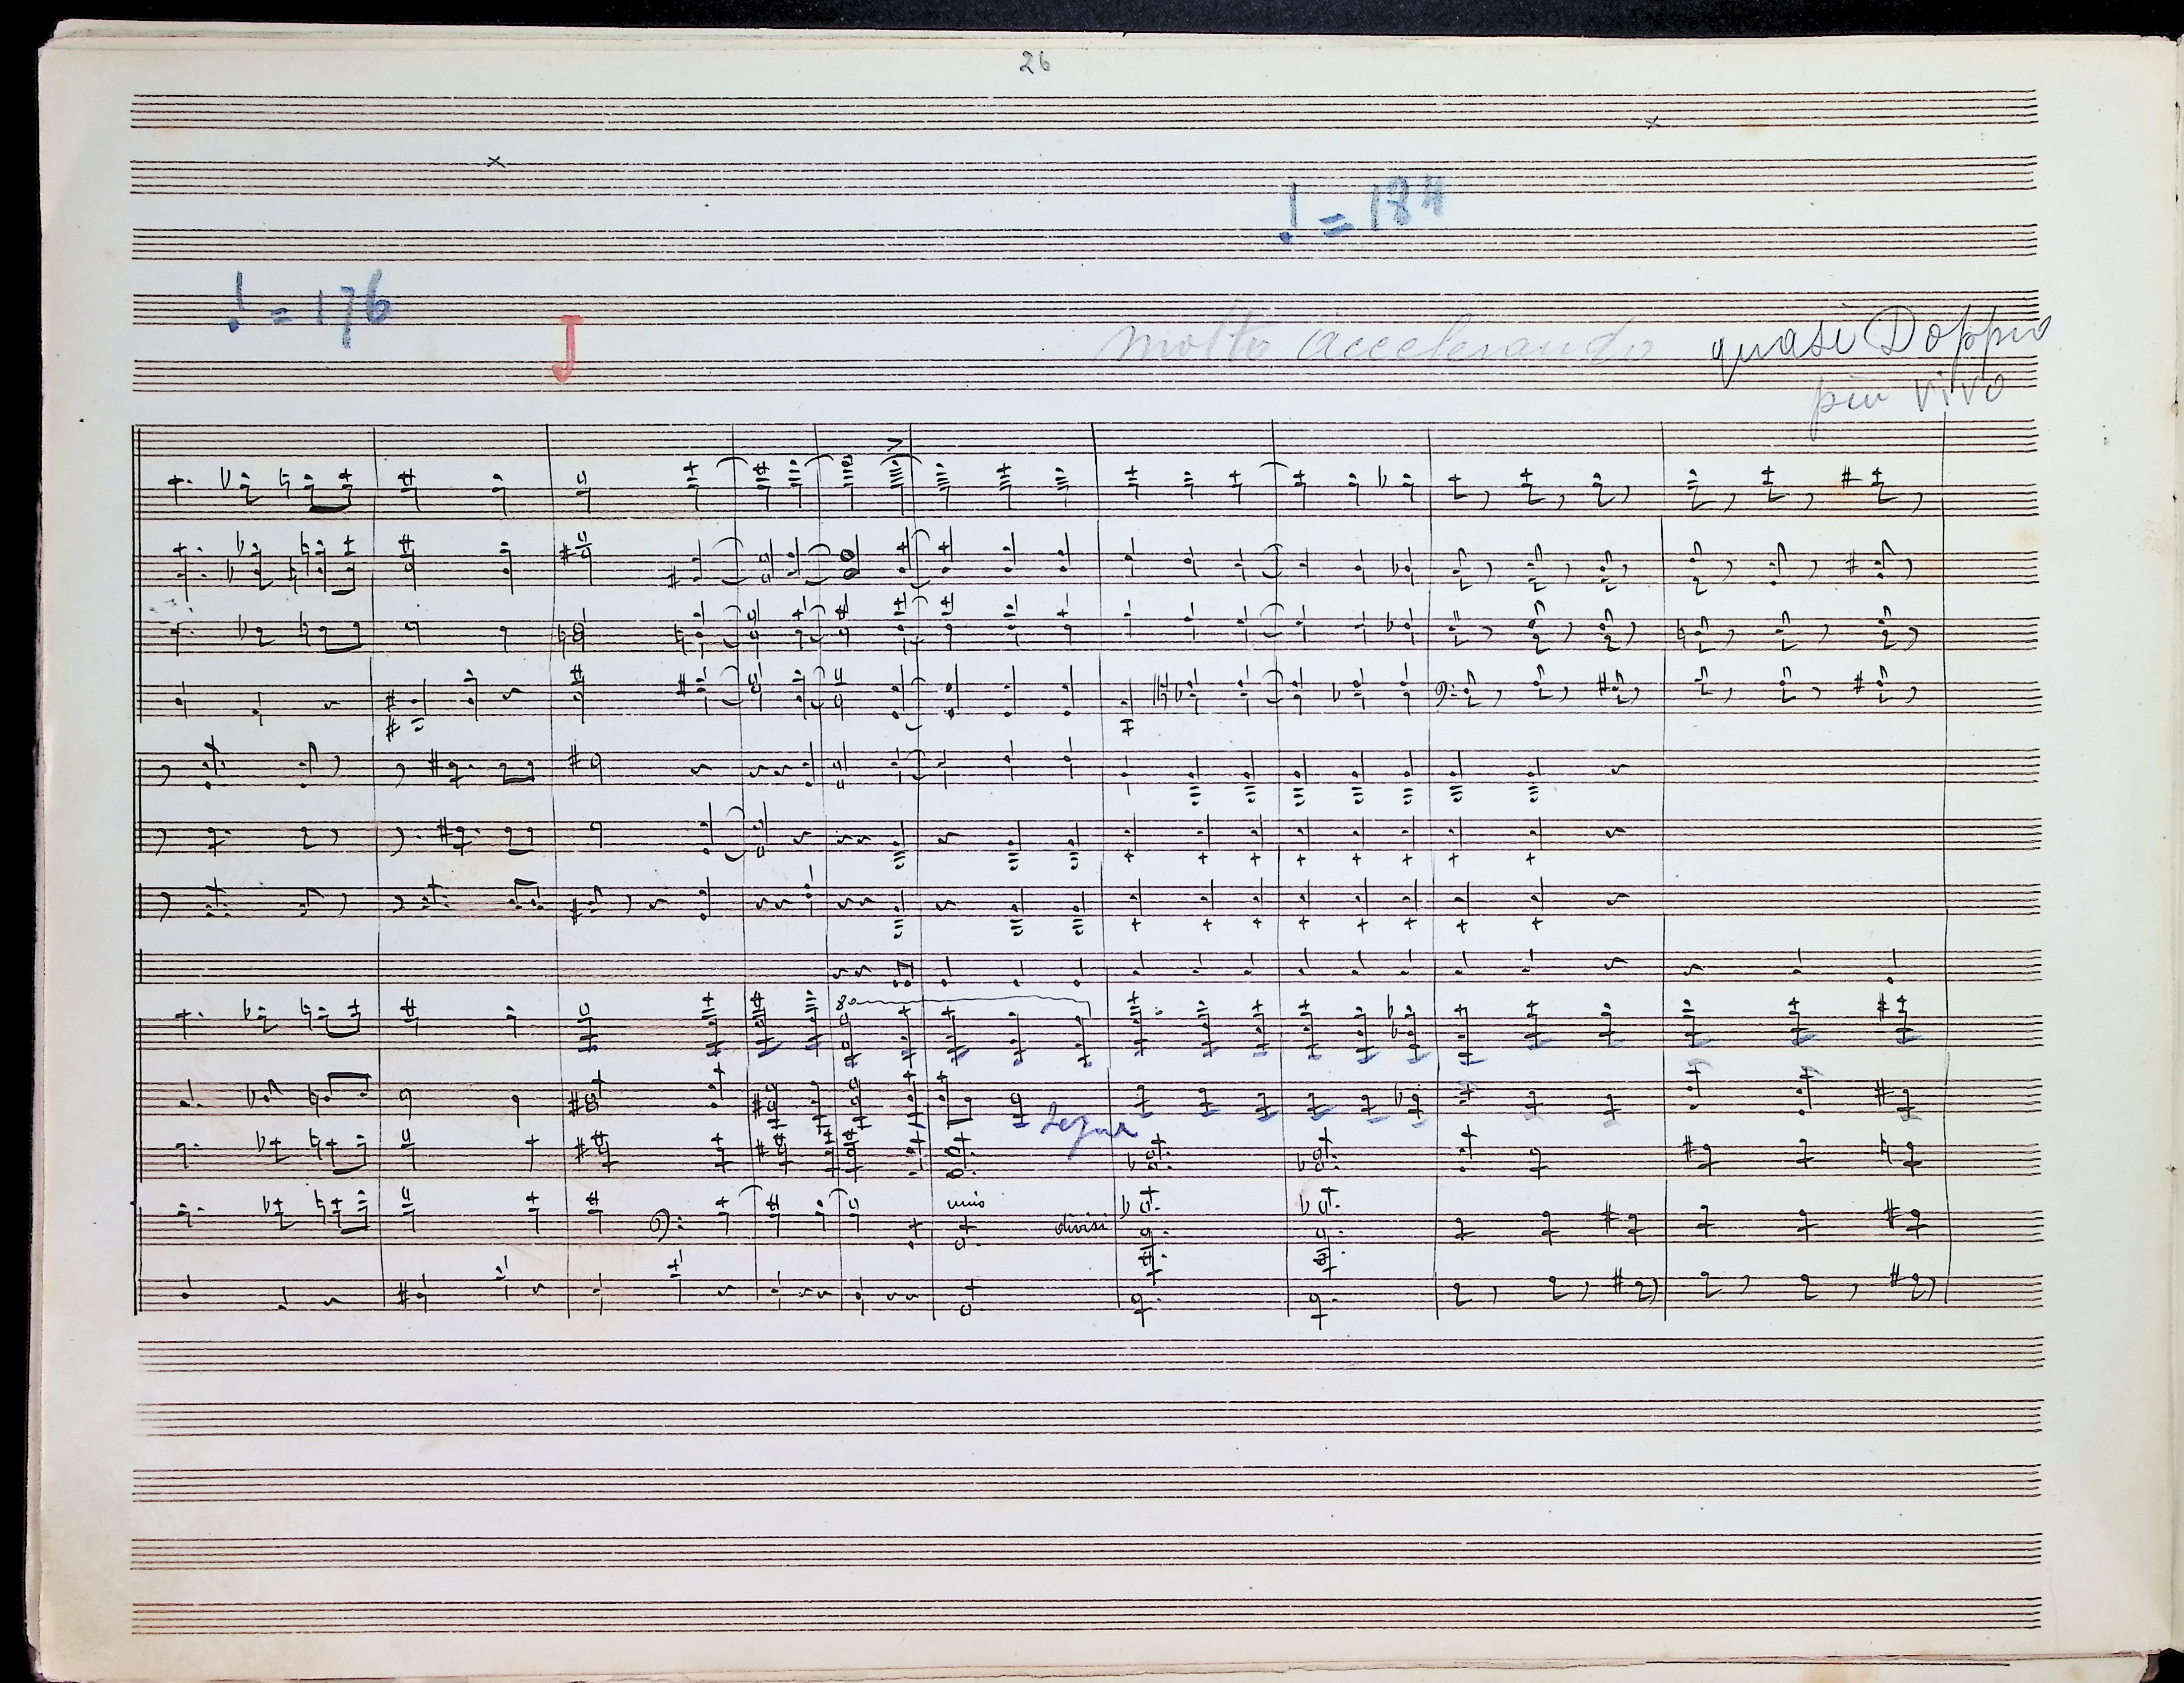 26
♩ = 184
♩ = 176
J
molto accelerando quasi Doppio
più vivo
8a
unis
divisi